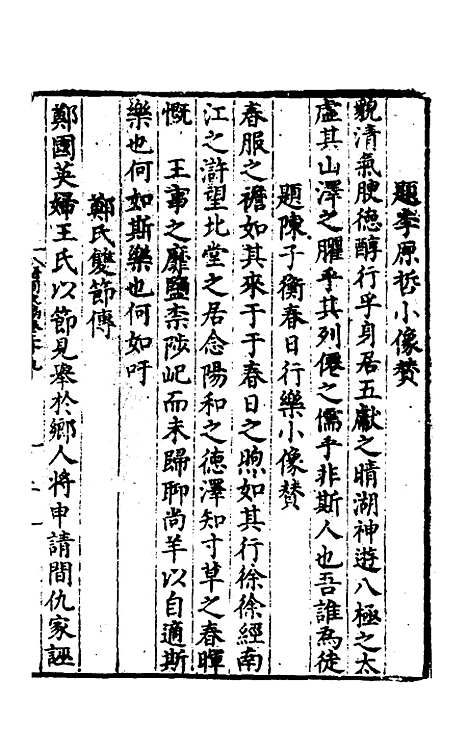 題李原哲小像贊
貌清氣腴德醇行孚身居五畝之晴湖神遊八極之太
虛其山澤之臞乎其列僊之儒乎非斯人也吾誰為徒
題陳子衡春日行樂小像贊
春服之襜如其來于于春日之煦如其行徐徐經南
江之滸望北堂之居念陽和之德澤知寸草之春暉
慨　王事之靡盬柰陟屺而未歸聊尚羊以自適斯
樂也何如斯樂也何如吁
鄭氏雙節傳
鄭國英婦王氏以節見舉於鄉人將申請間仇家誣